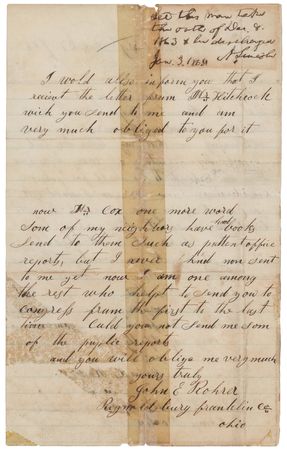 Let this man take
the oath of Dec. 8.
1863 & be discharged
A. Lincoln
Jan. 3. 1865
I would allso inform you that I
recievt the letter frum Mr Hitchcock
wich you send to me and am
very much obliged to you for it
now Mr Cox one more word
Som of my neighbors have books
send to them such as patent office
reports but I never had non sent
to me yet now I am one among
the rest who helpt to send you to
congress frum the first to the last
time Culd you not send me som
of the puplic reports
and you will oblige me very much
yours truly
John E Rohrer
Reynoldsburg franklin Co
ohio